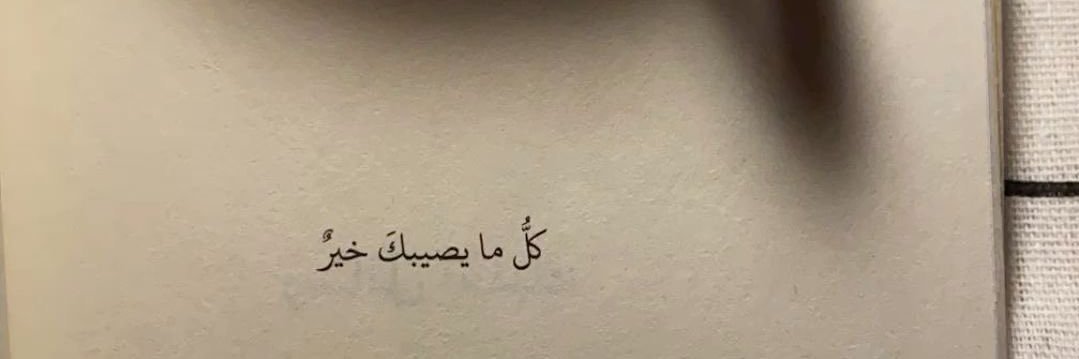 كلُّ ما يصيبكَ خيرٌ